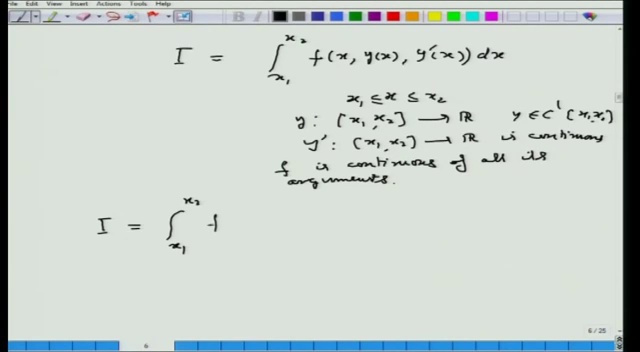 File Edit View Insert Actions Tools Help
I = ∫_{x₁}^{x₂} f(x, y(x), y'(x)) dx
x₁ ≤ x ≤ x₂
y : [x₁, x₂] → ℝ y ∈ C¹ [x₁, x₂]
y' : [x₁, x₂] → ℝ is continuous
f is continuous of all its
arguments.
I = ∫_{x₁}^{x₂} f
6 / 25
6